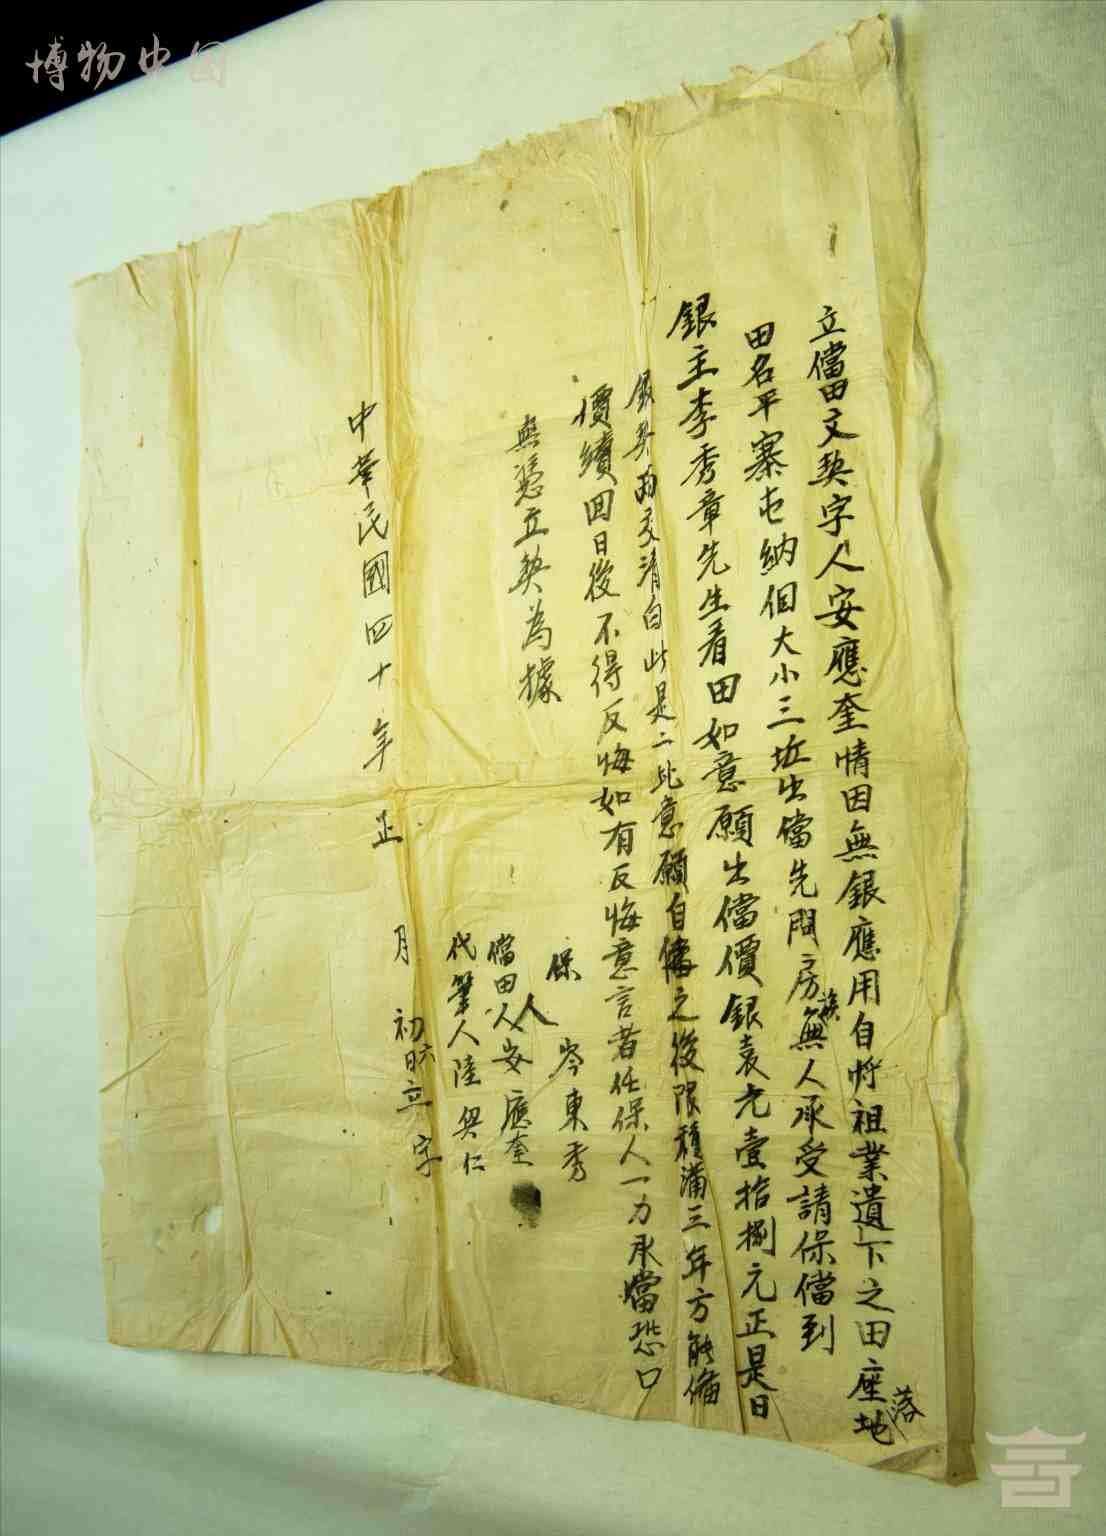 博物中国
立儅田文契字人安應奎情因無銀應用自將祖業遺下之田座落地
田名平寨屯納佪大小三坵出儅先問房族無人承受請保儅到
銀主李秀章先生看田如意願出儅價銀袁元壹拾捌元正是日
銀契兩交清白此是二比意願自儅之後限種滿三年方能俻
價續回日後不得反悔如有反悔意言者任保人一力承當恐口
無憑立契為據
保人岑東秀
儅田人安應奎
代筆人陸興仁
中華民國四十年正月初六日立字